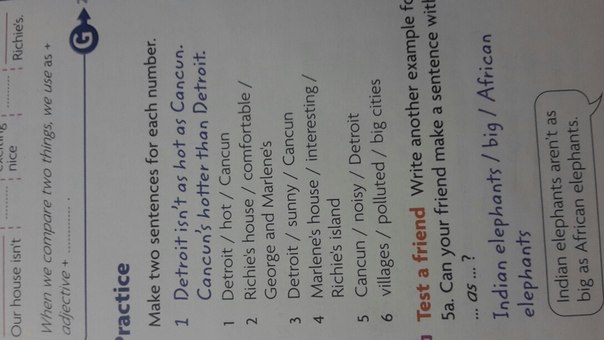 exciting
Our house isn't ¦ .......... ¦ nice ¦ .......... ¦ Richie's.
When we compare two things, we use as +
adjective + .......... .
G
Practice
Make two sentences for each number.
1 Detroit isn't as hot as Cancun.
Cancun's hotter than Detroit.
1 Detroit / hot / Cancun
2 Richie's house / comfortable /
George and Marlene's
3 Detroit / sunny / Cancun
4 Marlene's house / interesting /
Richie's island
5 Cancun / noisy / Detroit
6 villages / polluted / big cities
Test a friend Write another example fo
5a. Can your friend make a sentence with
... as ... ?
Indian elephants / big / African
elephants
Indian elephants aren't as
big as African elephants.